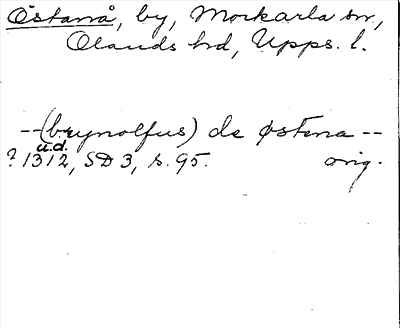 Östanå, by, Morkarla sn,
Olands hd, Upps. l.
--(brynolfus) de Østena --
u.d.
? 1312, SD 3, s. 95. orig.